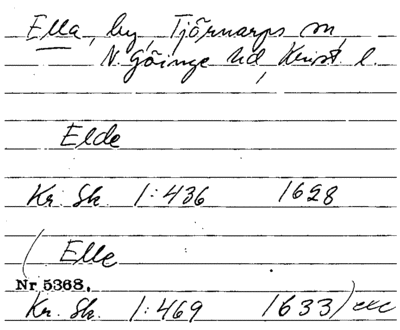 Ella, by, Tjörnarps sn,
N. Göinge hd, Krist. l.
Elde
Kr. Sk. 1:436 1628
(Elle
Nr 5368.
Kr. Sk. 1:469 1633) etc